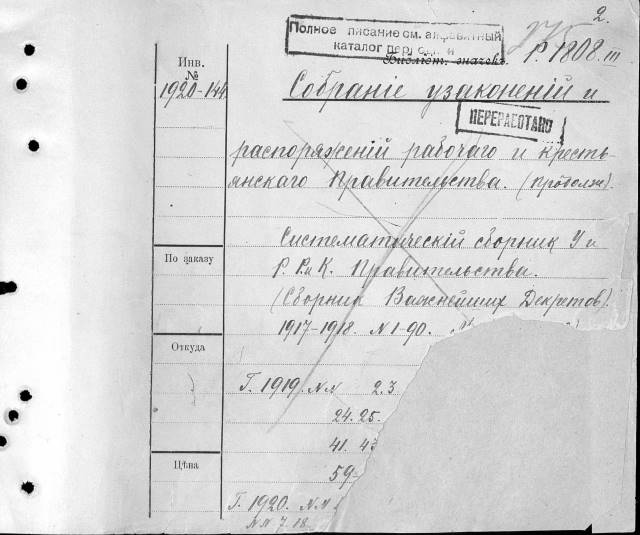 2.
Полное писание см. алфавитный
каталог
Библiот. значекъ.
Р. 1808. III
Инв.
№
1920-144
Собранiе узаконенiй и
ПЕРЕРАБОТАНО
распоряженiй рабочаго и кресть
янскаго Правительства. (продолж).
Систематическiй сборник У и
Р. Р. и К. Правительства.
По заказу
(Сборник Важнейших Декретов).
1917-1918. N 1-90.
Откуда
Г. 1919. N N 2.3
24. 25.
41. 43
59-
Цѣна
Г. 1920. N N
N N 7. 18.